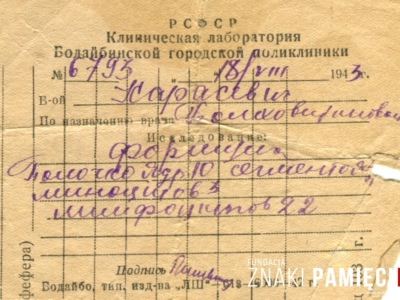 РСФСР
Клиническая лаборатория
Бодайбинской городской поликлиники
№ 6793 18/VIII 1943 г.
В-ой Харасевич
По назначению врача
Исследование:
формула
Палочкояд. 10 сегментов
моноцитов 3
лимфоцитов 22
Подпись
Бодайбо, тип. изд-ва „ЛШ“
FUNDACJA
ZNAKI PAMIĘCI